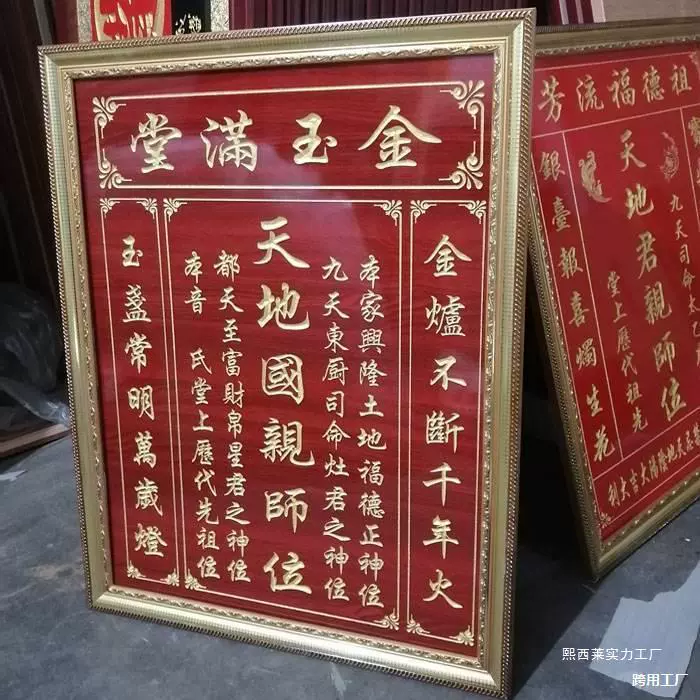 金玉滿堂
金爐不斷千年火
本家興隆土地福德正神位
九天東厨司命灶君之神位
天地國親師位
都天至富財帛星君之神位
本音 氏堂上歷代先祖位
玉盞常明萬歲燈
祖德福流芳
九天司命
天地君親師位
堂上歷代祖先
銀臺報喜燭生花
天地陰陽大吉大利
熙西莱实力工厂
跨用工厂